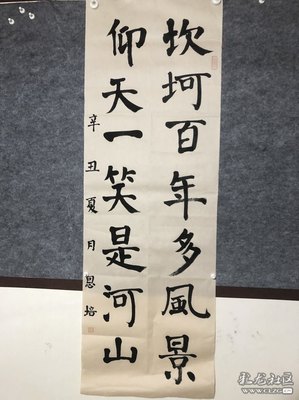 坎坷百年多風景
仰天一笑是河山
辛丑夏月恩培